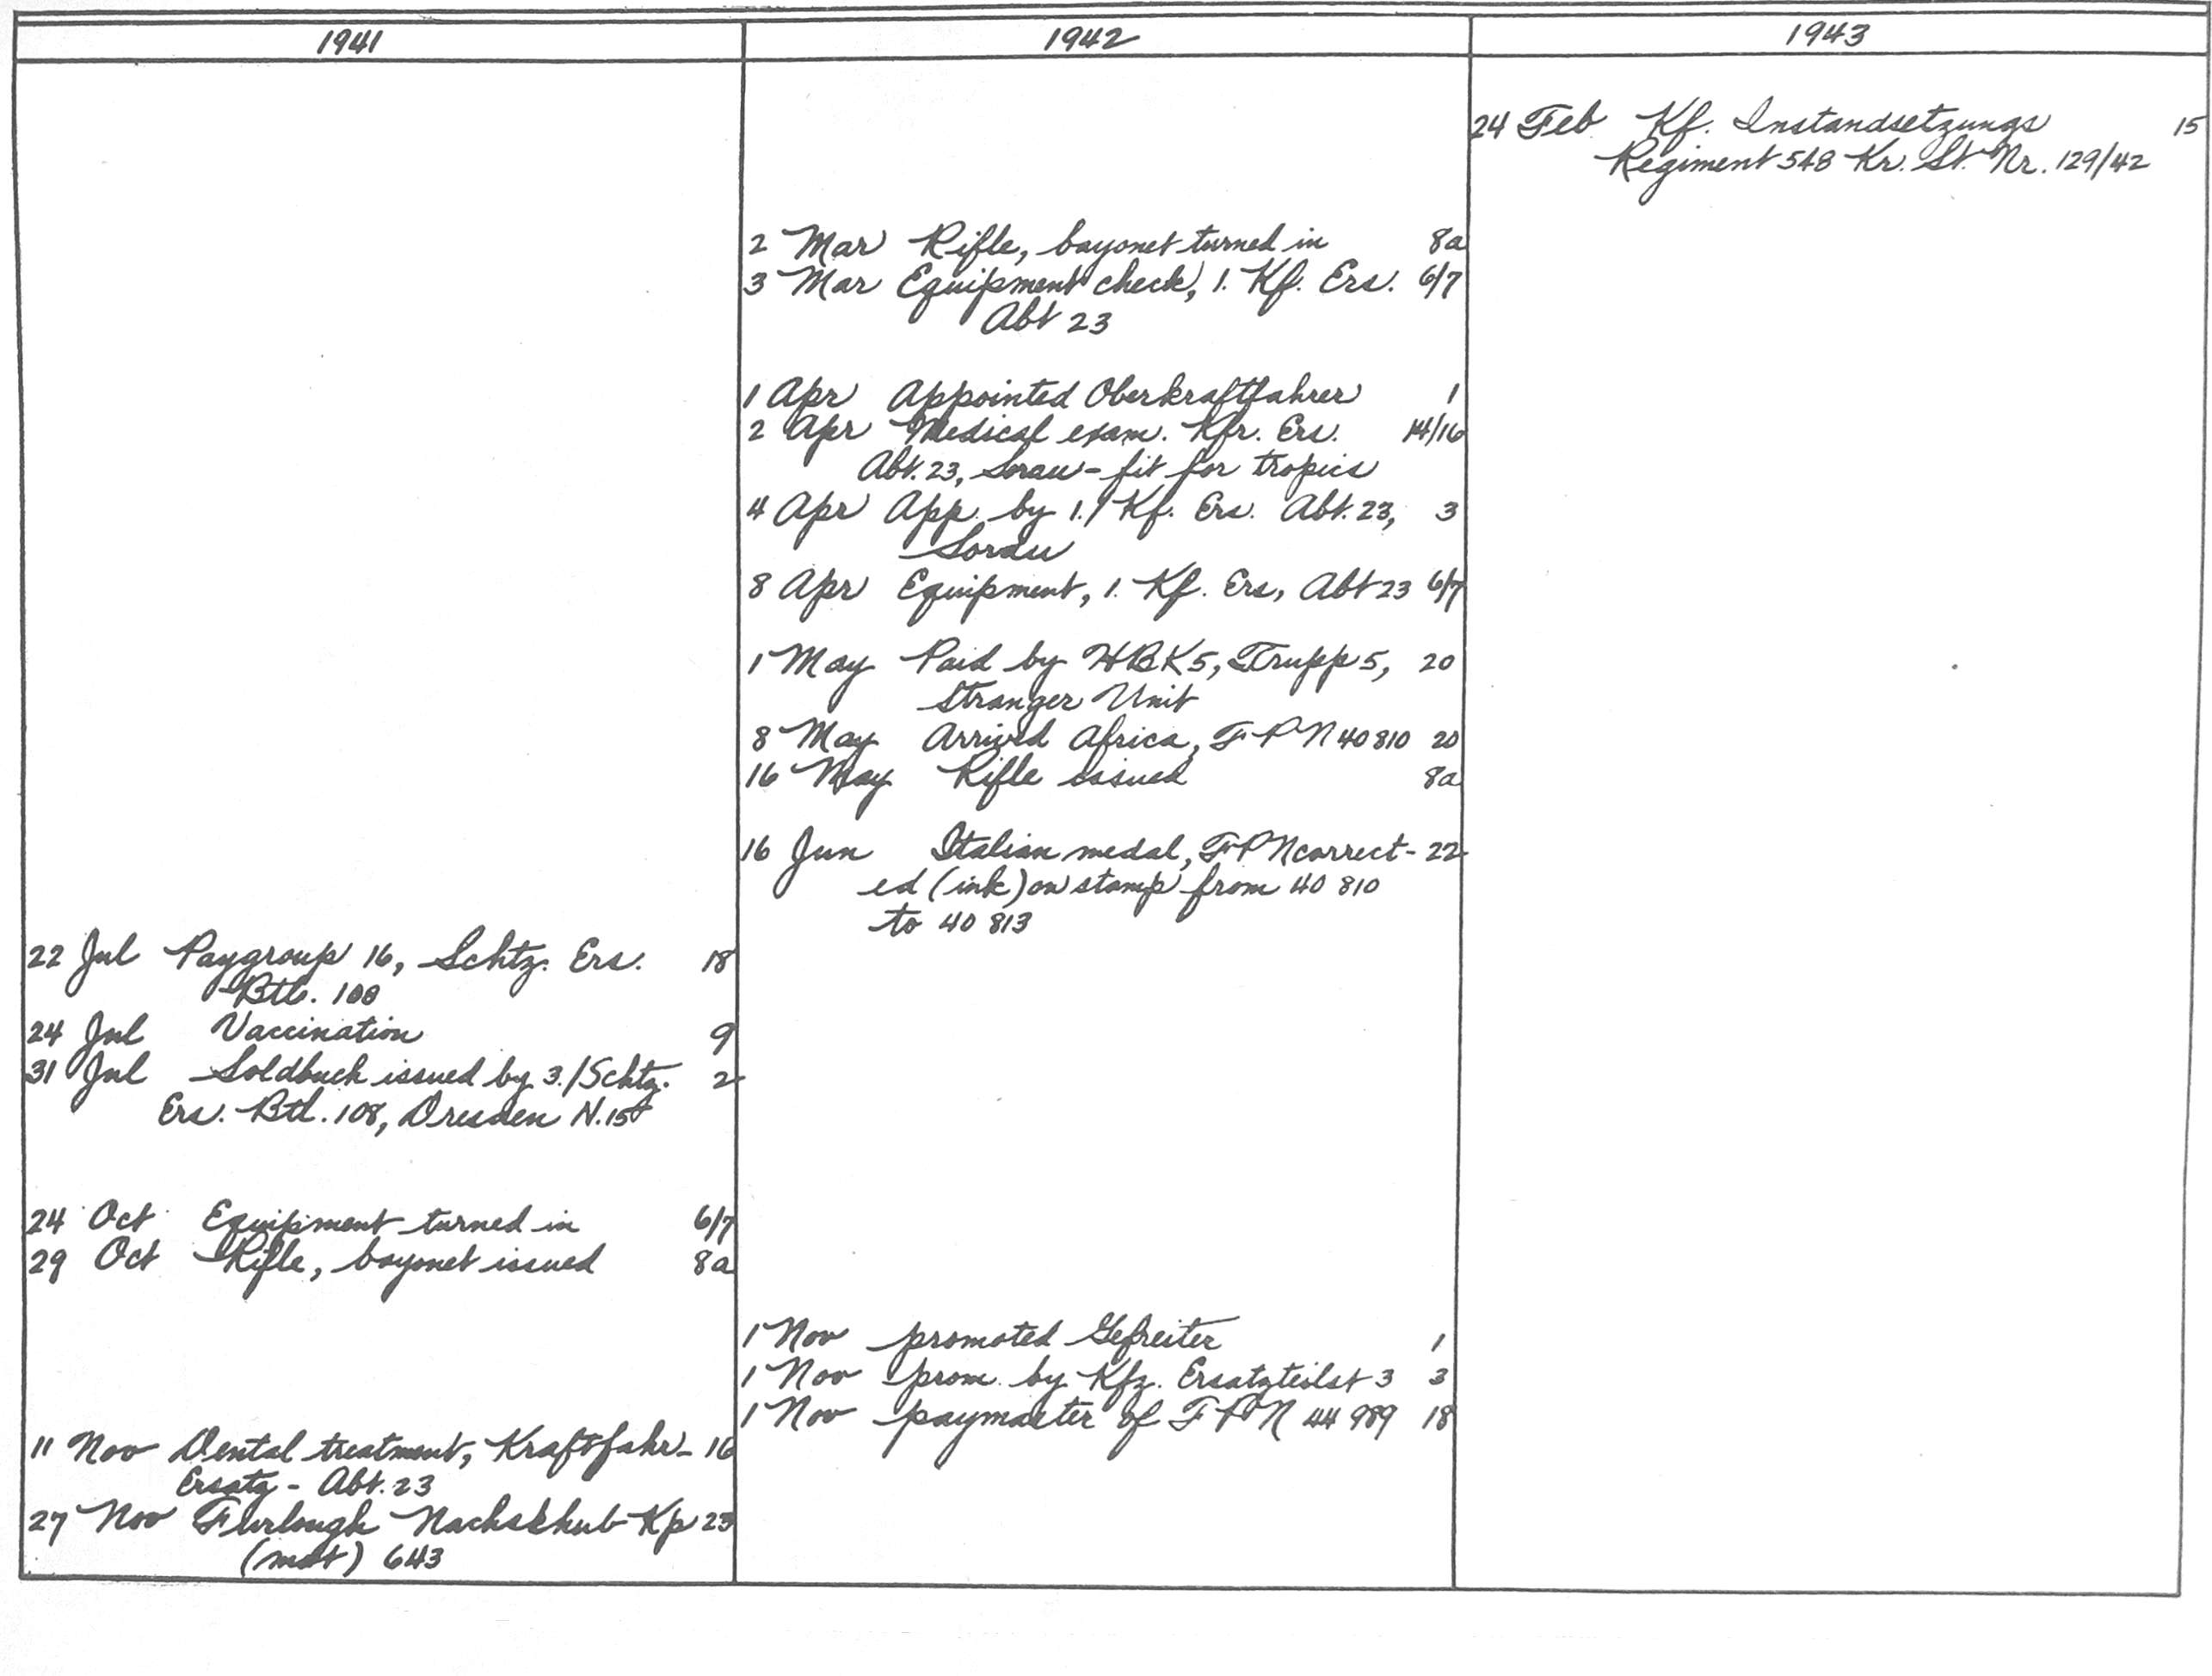 1941
22 Jul Paygroup 16, Schtz. Ers. 18
Btl. 108
24 Jul Vaccination 9
31 Jul Soldbuch issued by 3./Schtz. 2
Ers. Btl. 108, Dresden N. 15
24 Oct Equipment turned in 6/7
29 Oct Rifle, bayonet issued 8a
11 Nov Dental treatment, Kraftfahr- 16
Ersatz - Abt. 23
27 Nov Furlough Nachschub Kp 23
(mot) 643
1942
2 Mar Rifle, bayonet turned in 8a
3 Mar Equipment check, 1. Kf. Ers. 6/7
Abt 23
1 Apr Appointed Oberkraftfahrer 1
2 Apr Medical exam. Kfr. Ers. 14/16
Abt. 23, Sorau - fit for tropics
4 Apr App. by 1./Kf. Ers. Abt. 23, 3
Sorau
8 Apr Equipment, 1. Kf. Ers, Abt 23 6/7
1 May Paid by HBK 5, Trupp 5, 20
Stranger Unit
8 May Arrived Africa, FPN 40 810 20
16 May Rifle issued 8a
16 Jun Italian medal, FPN correct- 22
ed (ink) on stamp from 40 810
to 40 813
1 Nov promoted Gefreiter 1
1 Nov prom. by Kfz. Ersatzteilst 3 3
1 Nov paymaster of FPN 44 989 18
1943
24 Feb Kf. Instandsetzungs 15
Regiment 548 Kr. St. Nr. 129/42